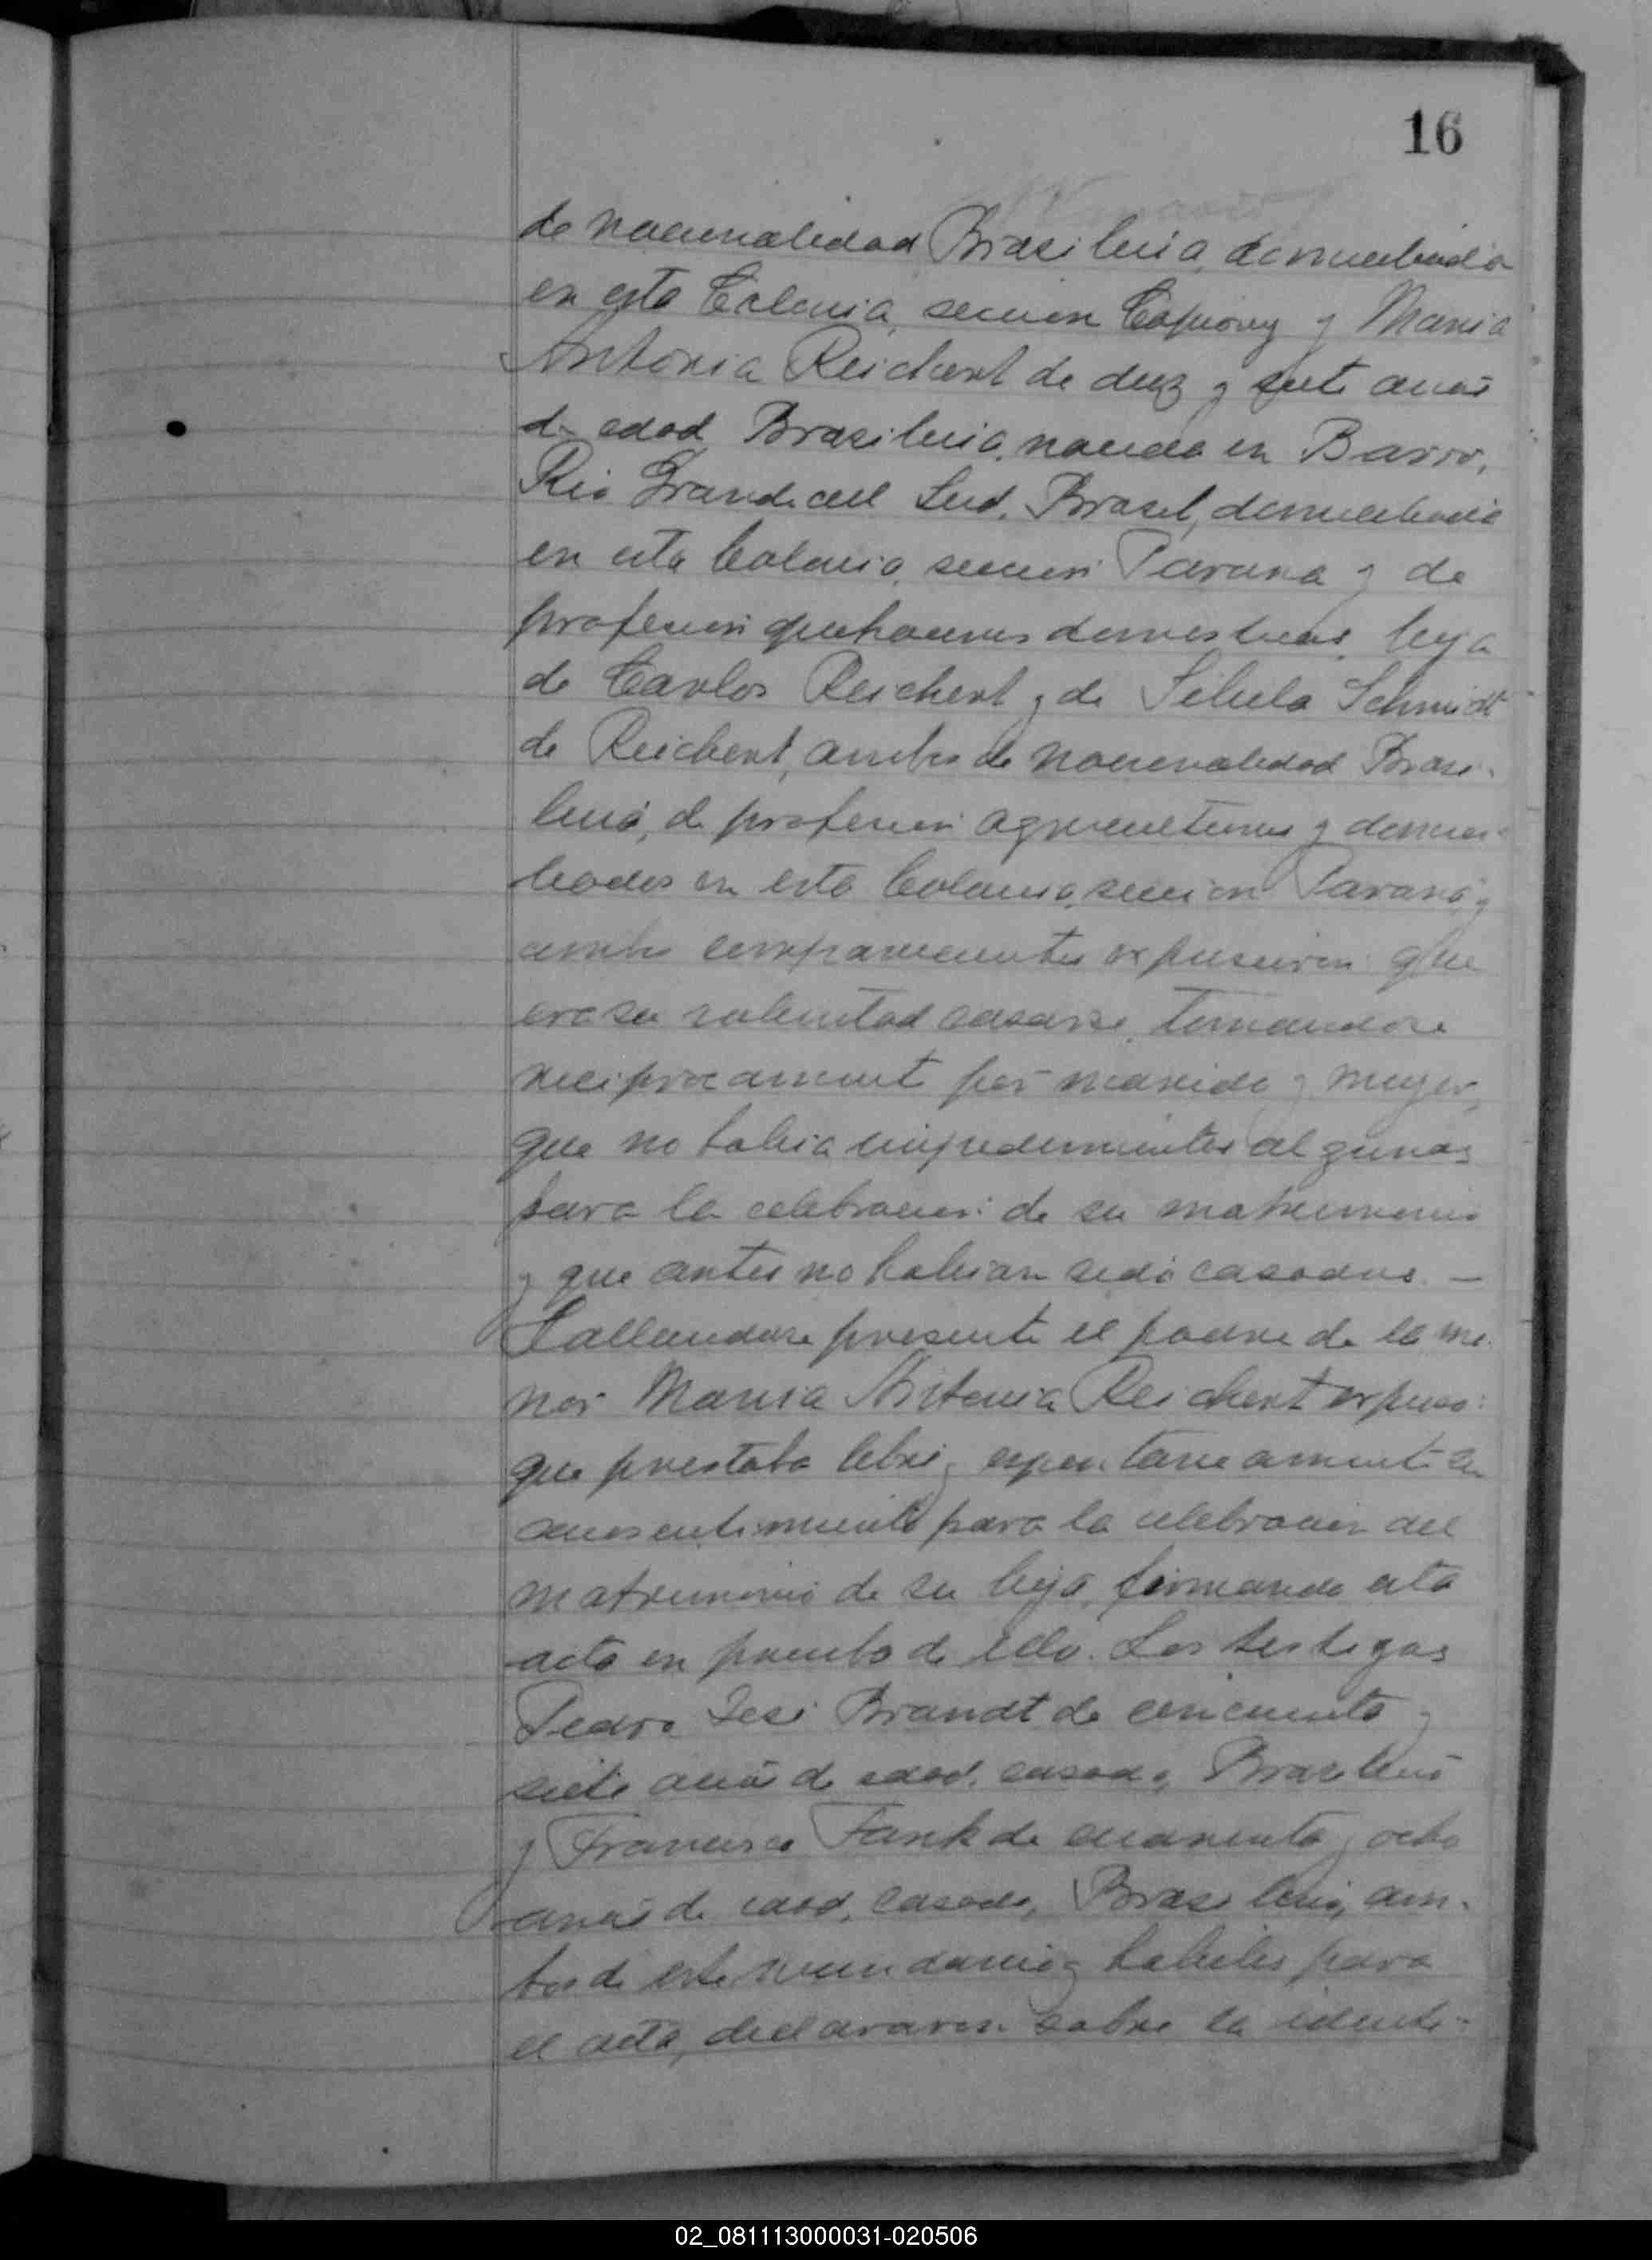 16
de nacionalidad Brasileña, domiciliada
en esta Colonia, seccion Capiovy y Maria
Antonia Reichert de diez y siete años
de edad Brasileña, nacida en Barro,
Rio Grande del Sud, Brasil, domiciliada
en esta Colonia, seccion Parana y de
profesion quehaceres domesticos, hija
de Carlos Reichert y de Sibila Schmidt
de Reichert, ambos de nacionalidad Brasi-
leña, de profesion agricultores y domici-
liados en esta Colonia, seccion Paraná y
ambos comparecientes expusieron: que
era su voluntad casarse, tomandose
reciprocamente por marido y mujer,
que no habia impedimentos algunos
para la celebracion de su matrimonio
y que antes no habian sido casados. —
Hallandose presente el padre de la me-
nor Maria Antonia Reichert expuso:
que prestaba libre y espontaneamente su
consentimiento para la celebracion del
matrimonio de su hija, firmando esta
acta en prueba de ello. Los testigos
Pedro José Brandt de cincuenta y
siete años de edad, casado, Brasileño
y Francisco Fank de cuarenta y ocho
años de edad, casado, Brasileño, am-
bos de este vecindario y habiles para
el acto, declararon sobre la identi-
02_081113000031-020506